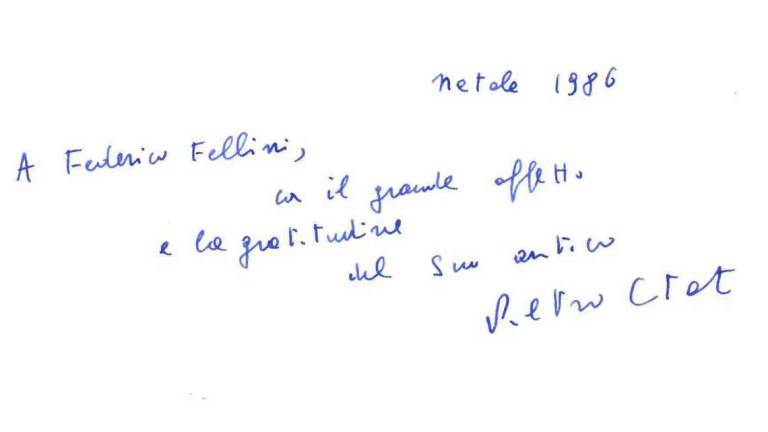 Natale 1986
A Federico Fellini,
con il grande affetto
e la gratitudine
del suo antico
Pietro Citati